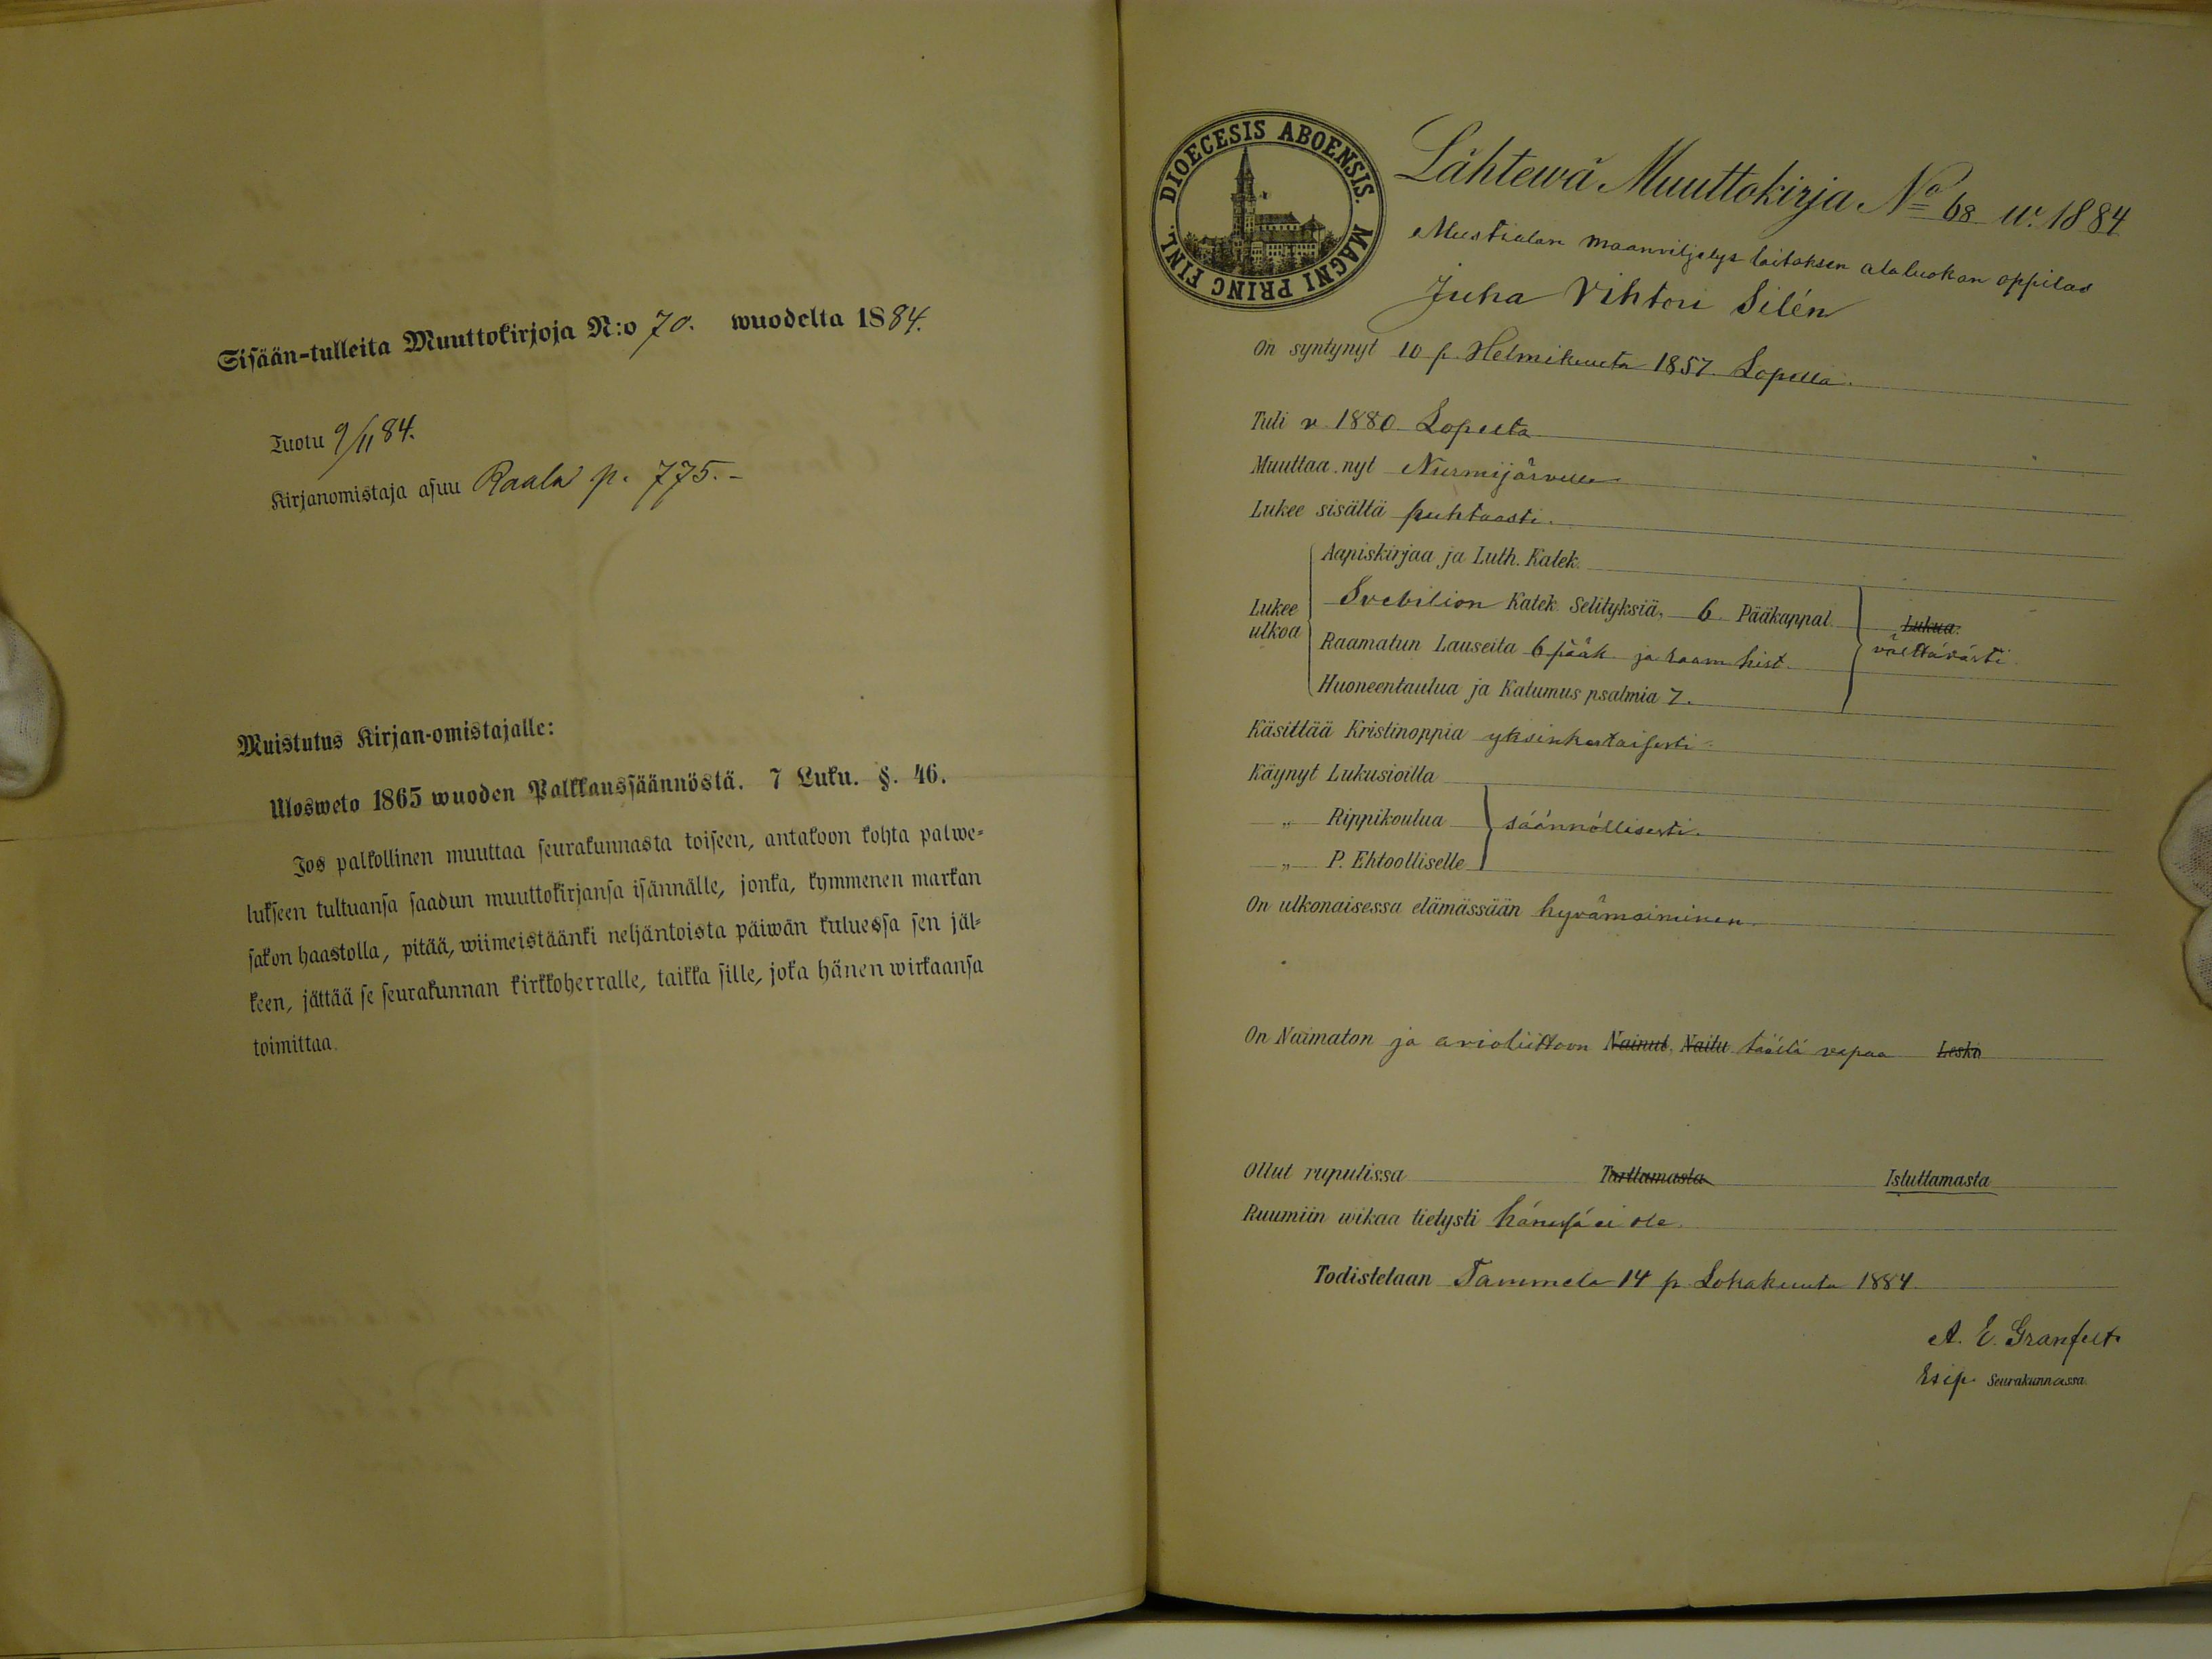 Sisään-tulleita Muuttokirjoja N:o 70. wuodelta 1884.
Tuotu 9/11 84.
Kirjanomistaja asuu Raala p. 775.-
Muistutus Kirjan-omistajalle:
Ulosweto 1865 wuoden Palkkaussäännöstä. 7 Luku. §. 46.
Jos palkollinen muuttaa seurakunnasta toiseen, antakoon kohta palwe-
lukseen tultuansa saadun muuttokirjansa isännälle, jonka, kymmenen markan
sakon haastolla, pitää, wiimeistäänki neljäntoista päiwän kuluessa sen jäl-
keen, jättää se seurakunnan kirkkoherralle, taikka sille, joka hänen wirkaansa
toimittaa.
DIOECESIS ABOENSIS. MAGNI PRINC FINL.
Lähtewä Muuttokirja No 68 w. 1884
Mustialan maanviljelys laitoksen alaluokan oppilas
Juha Vihtori Silén
On syntynyt 10 p. Helmikuuta 1857. Lopella.
Tuli v 1880 Lopelta
Muuttaa nyt Nurmijärvelle
Lukee sisältä puhtaasti.
Aapiskirjaa ja Luth. Katek.
Lukee ulkoa
Svebilion Katek. Selityksiä, 6 Pääkappal. Lukua.
Raamatun Lauseita 6 pääk ja raam hist. välttävästi.
Huoneentaulua ja Katumus psalmia 7.
Käsittää Kristinoppia yksinkertaisesti
Käynyt Lukusioilla
„ Rippikoulua säännöllisesti.
„ P. Ehtoolliselle
On ulkonaisessa elämässään hyvämaininen.
On Naimaton ja avioliittoon Nainut, Naitu täältä vapaa Leski
Ollut rupulissa Tarttamasta Istuttamasta
Ruumiin wikaa tietysti hänessä ei ole.
Todistetaan Tammela 14 p. Lokakuuta 1884.
A. E. Granfelt.
Esip. Seurakunnassa.